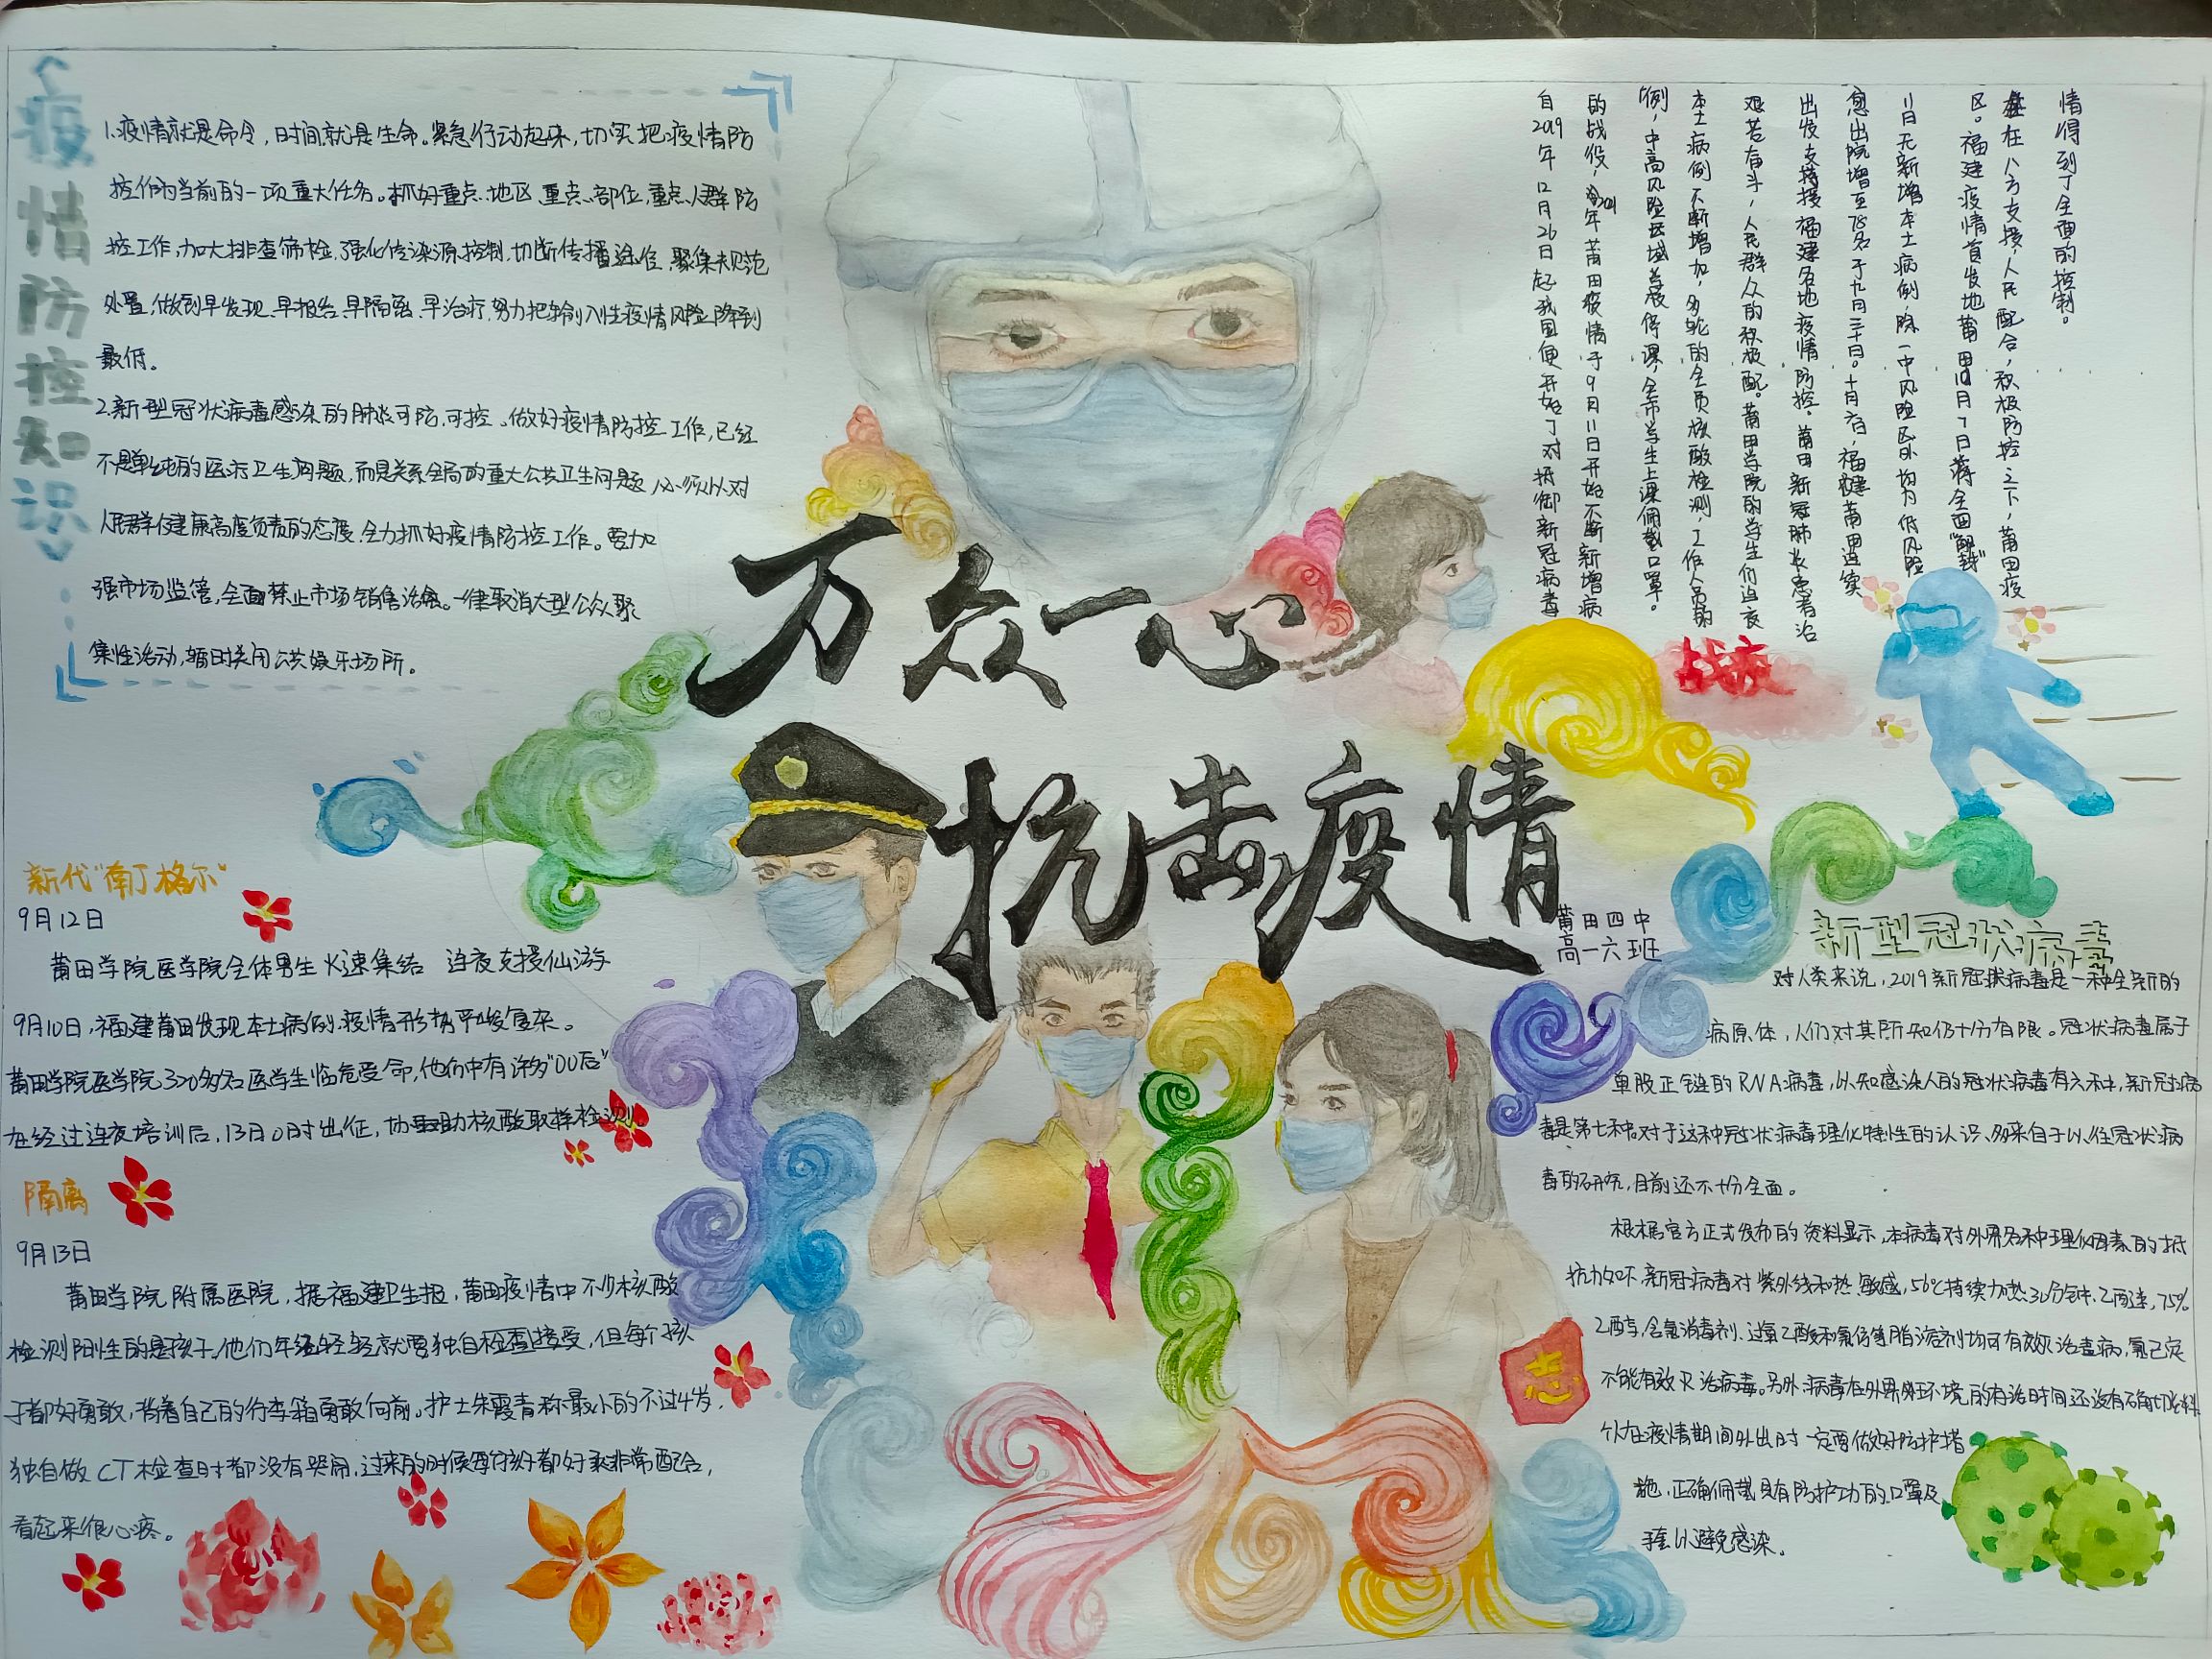 疫情防控知识
1.疫情就是命令，时间就是生命。紧急行动起来，切实把疫情防
控作为当前的一项重大任务。抓好重点地区、重点部位，重点人群防
控工作，加大排查筛检，强化传染源控制，切断传播途径，聚集规范
处置，做到早发现、早报告、早隔离、早治疗，努力把输入性疫情风险降到
最低。
2.新型冠状病毒感染的肺炎可防，可控。做好疫情防控工作，已经
不是单纯的医疗卫生问题，而是关系全局的重大公共卫生问题，必须以对
人民群众健康高度负责的态度，全力抓好疫情防控工作。要加
强市场监管，全面禁止市场销售活禽。一律取消大型公众聚
集性活动，暂时关闭公共娱乐场所。
万众一心
抗击疫情
莆田四中
高一六班
自2019年12月26日起我国便开始了对抵御新冠病毒
的战役，年莆田疫情于9月11日开始不断新增病
例，中高风险区域停课，全市学生上课佩戴口罩。
本土病例不断增加，多轮的全员核酸检测，工作人员的
艰苦奋斗，人民群众的积极配。莆田学院的学生们连夜
出发支持援福建各地疫情防控。莆田新冠肺炎患者治
愈出院增至78名于九月三十日。十月六日，福建莆田连续
11日无新增本土病例除一中风险区外均为低风险
区。福建疫情首发地莆田10月7日蒋全面"解封"
在八方支援，人民配合，积极防控之下，莆田疫
情得到了全面的控制。
战疫
新代"南丁格尔"
9月12日
莆田学院医学院全体男生火速集结 连夜支援仙游
9月10日，福建莆田发现本土病例，疫情形势严峻复杂。
莆田学院医学院320多名医学生临危受命，他们中有许多"00后"
在经过连夜培训后，13月0时出征，协助核酸取样检测。
隔离
9月13日
莆田学院附属医院，据福建卫生报，莆田疫情中不少核酸
检测阳性的是孩子，他们年纪轻轻就要独自检查接受，但每个孩
子都好勇敢，背着自己的行李箱勇敢向前。护士朱霞青称最小的不过4岁，
独自做CT检查时都没有哭闹，过来的时候每个孩子都好乖非常配合，
看起来很心疼。
新型冠状病毒
对人类来说，2019新冠状病毒是一种全新的
病原体，人们对其所知仍十分有限。冠状病毒属于
单股正链的RNA病毒，以知感染人的冠状病毒有六种，新冠病
毒是第七种。对于这种冠状病毒理化特性的认识，多来自于以往冠状病
毒的研究，目前还不十分全面。
根据官方正式发布的资料显示，本病毒对外界各种理化因素的抵
抗力如下，新冠病毒对紫外线和热敏感，56℃持续加热30分钟、乙醚、75%
乙醇，含氯消毒剂、过氧乙酸和氯仿等脂溶剂均可有效灭活毒病，氯己定
不能有效灭活病毒。另外，病毒在外界环境的存活时间还没有确切资料。
个人在疫情期间外出时一定要做好防护措
施，正确佩戴具有防护功的口罩及
手套以避免感染。
志